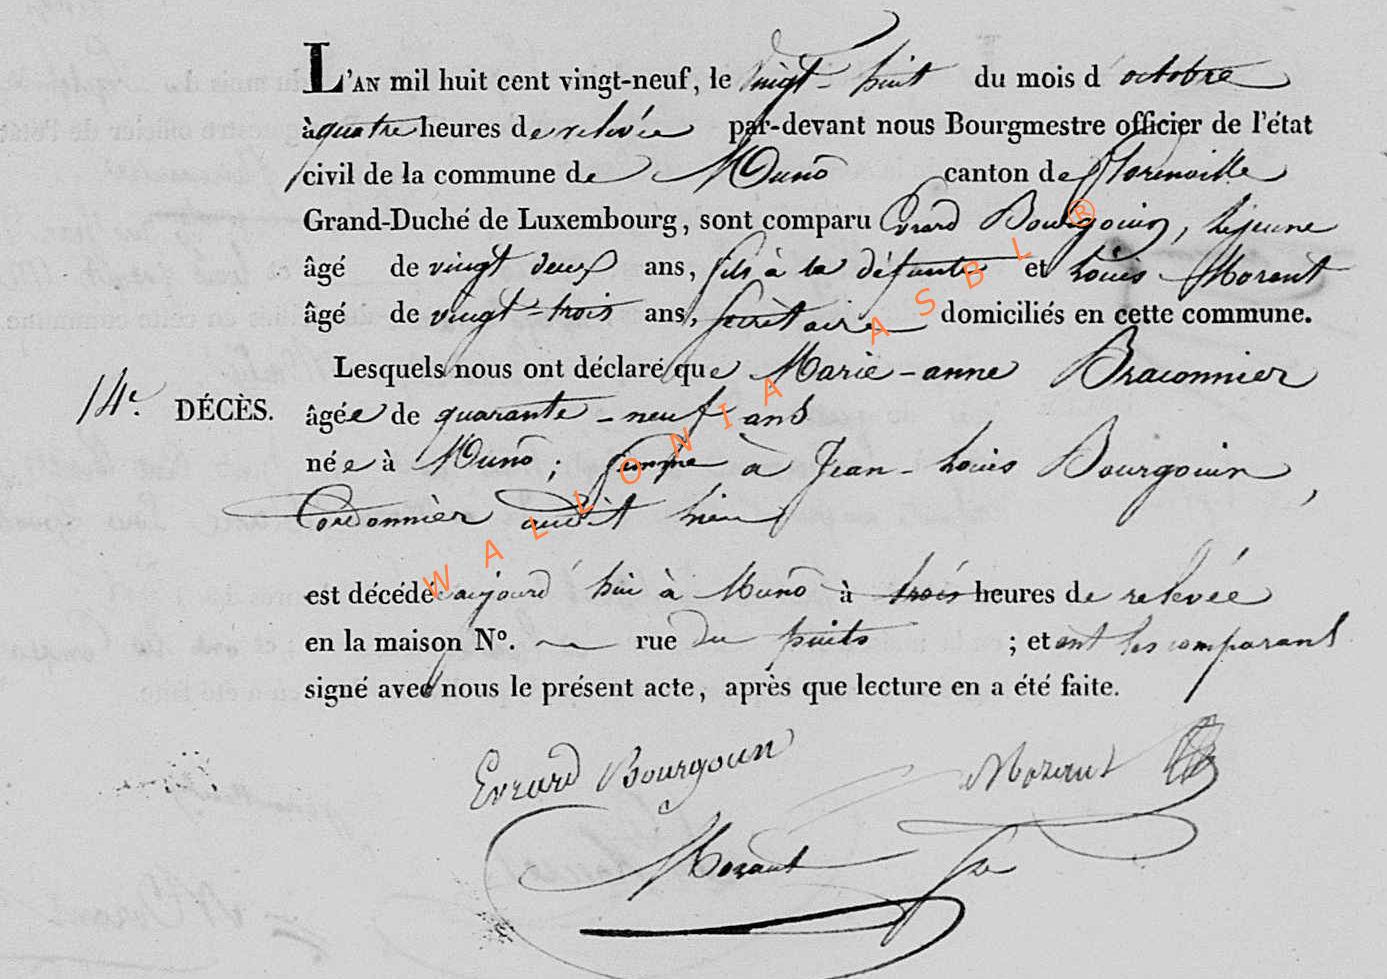 L'AN mil huit cent vingt-neuf, le vingt-huit du mois d'octobre
à quatre heures de relevée par-devant nous Bourgmestre officier de l'état
civil de la commune de Muno canton de Florenville
Grand-Duché de Luxembourg, sont comparu Evrard Bourgouin, lejeune
âgé de vingt deux ans, fils à la défunte et Louis Morant
âgé de vingt-trois ans, secrètaire domiciliés en cette commune.
Lesquels nous ont déclaré que Marie-anne Braconnier
14e. DÉCÈS. âgée de quarante-neuf ans
née à Muno; femme à Jean-Louis Bourgouin,
Cordonnier audit lieu
est décédé aujourd'hui à Muno à trois heures de relevée
en la maison No. rue du puits ; et ont les comparans
signé avec nous le présent acte, après que lecture en a été faite.
Evrard Bourgouin Morant
Morant
WALLONIA ASBL ®